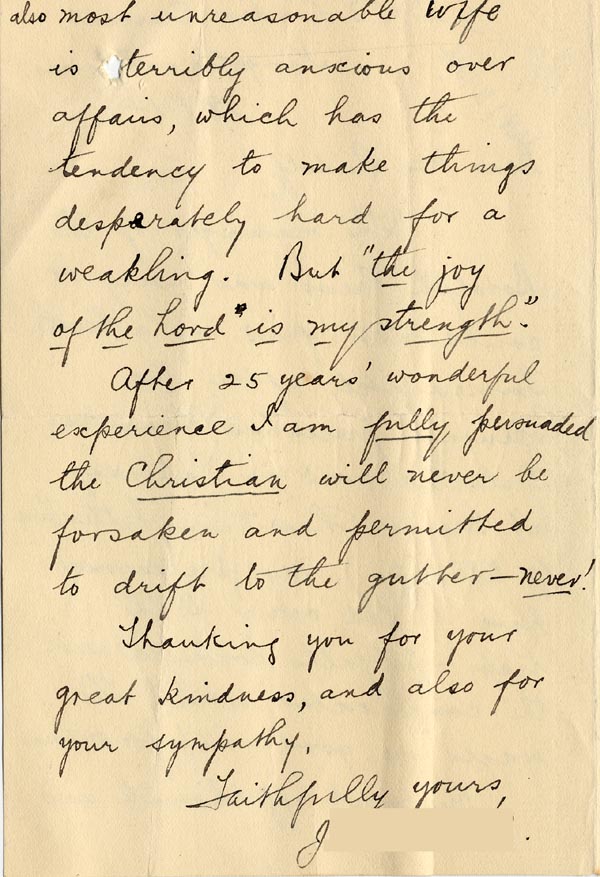 also most unreasonable wife
is terribly anxious over
affairs, which has the
tendency to make things
desperately hard for a
weakling. But "the joy
of the Lord" is my strength."
After 25 years' wonderful
experience I am fully persuaded
the Christian will never be
forsaken and permitted
to drift to the gutter—never!
Thanking you for your
great kindness, and also for
your sympathy.
Faithfully yours,
J